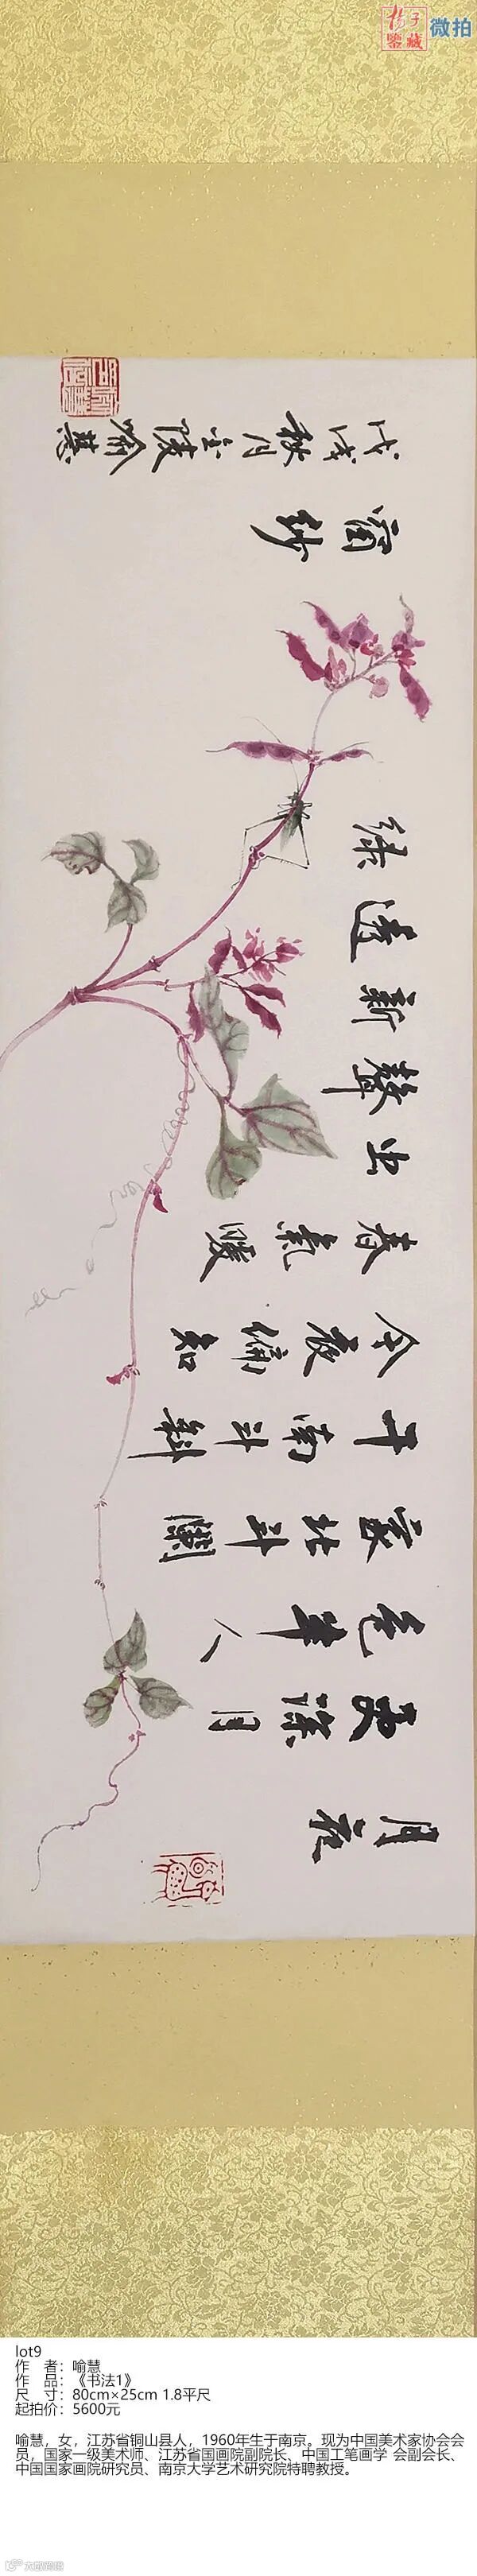 扬子
鉴藏
微拍
月夜
更深月
色半人
家北斗阑
干南斗斜
今夜偏知
春气暖
虫
声
新
透
绿
窗纱
戊戌秋月金陵喻慧
lot9
作 者：喻慧
作 品：《书法1》
尺 寸：80cm×25cm 1.8平尺
起拍价：5600元
喻慧，女，江苏省铜山县人，1960年生于南京。现为中国美术家协会会
员，国家一级美术师、江苏省国画院副院长、中国工笔画学 会副会长、
中国国家画院研究员、南京大学艺术研究院特聘教授。